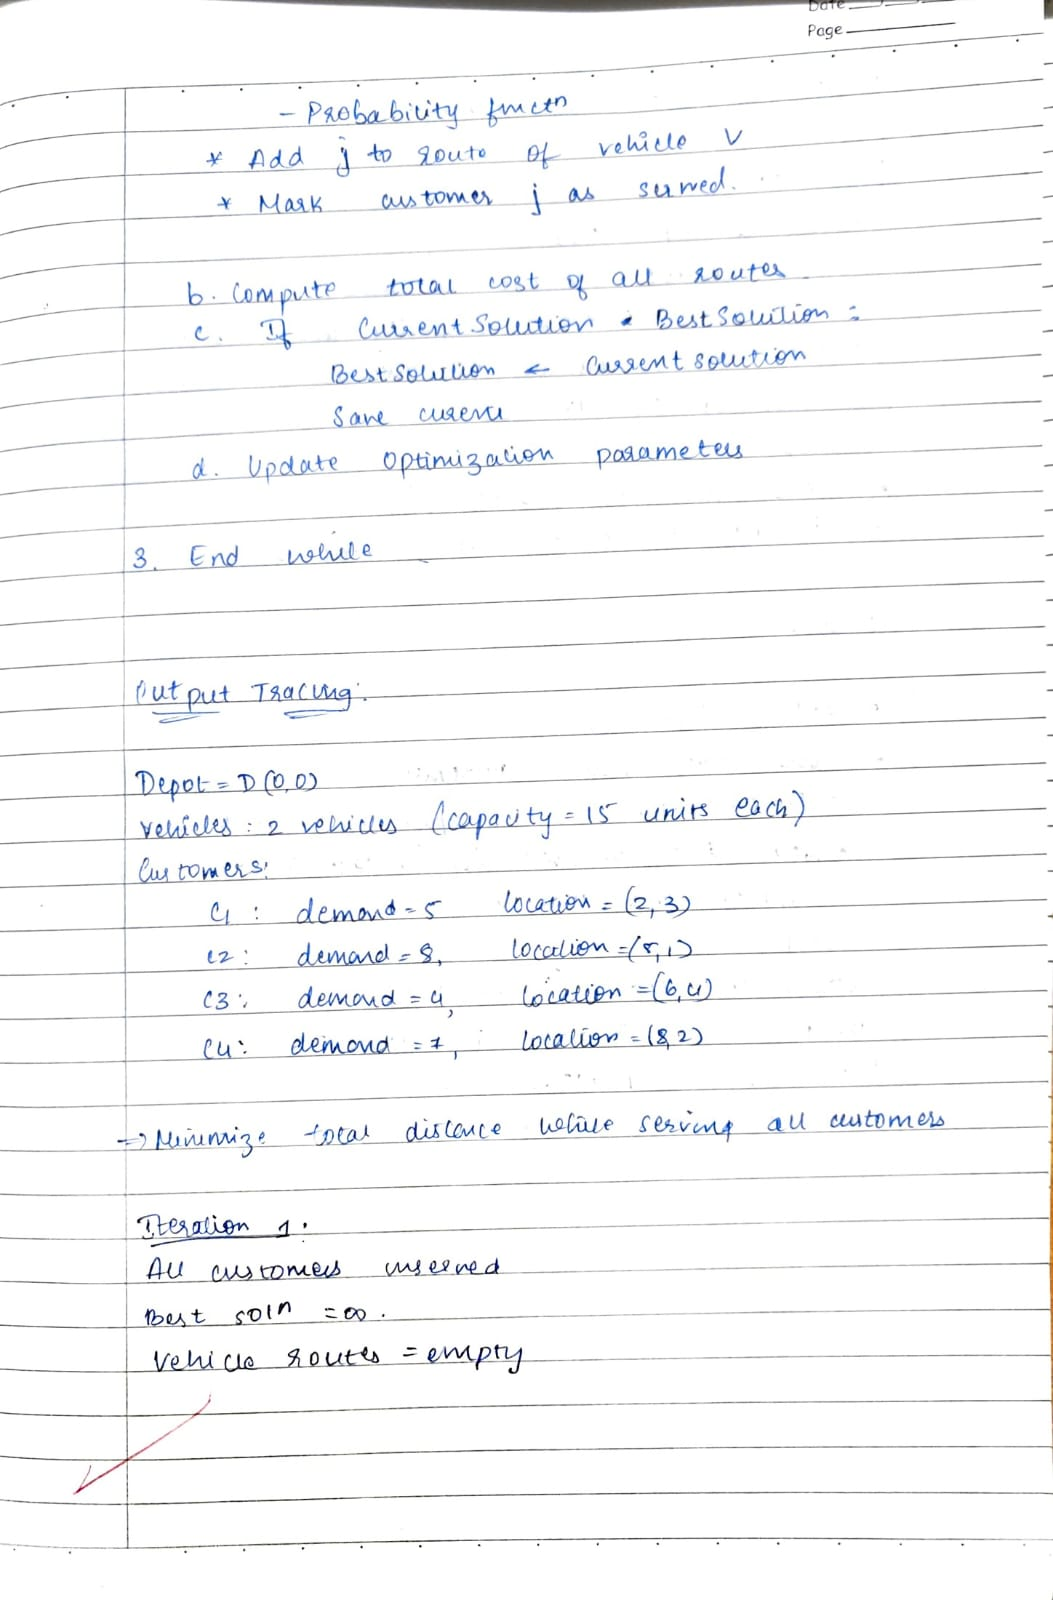 Date
Page
- Probability functn
* Add j to route of vehicle V
* Mark customer j as served.
b. Compute total cost of all routes
c. If Current Solution Best Solution :
Best Solution ← Current solution
Save
d. Update Optimization parameters
3. End while
Output Tracing:
Depot = D (0,0)
Vehicles : 2 vehicles (capacity = 15 units each)
Customers:
C1 : demand = 5 location = (2,3)
C2 : demand = 8, location = (5,1)
C3 : demand = 4, location = (6,4)
C4 : demand = 7, location = (8,2)
=> Minimize total distance while serving all customers
Iteration 1 :
All customers unserved
Best soln = ∞ .
Vehicle routes = empty